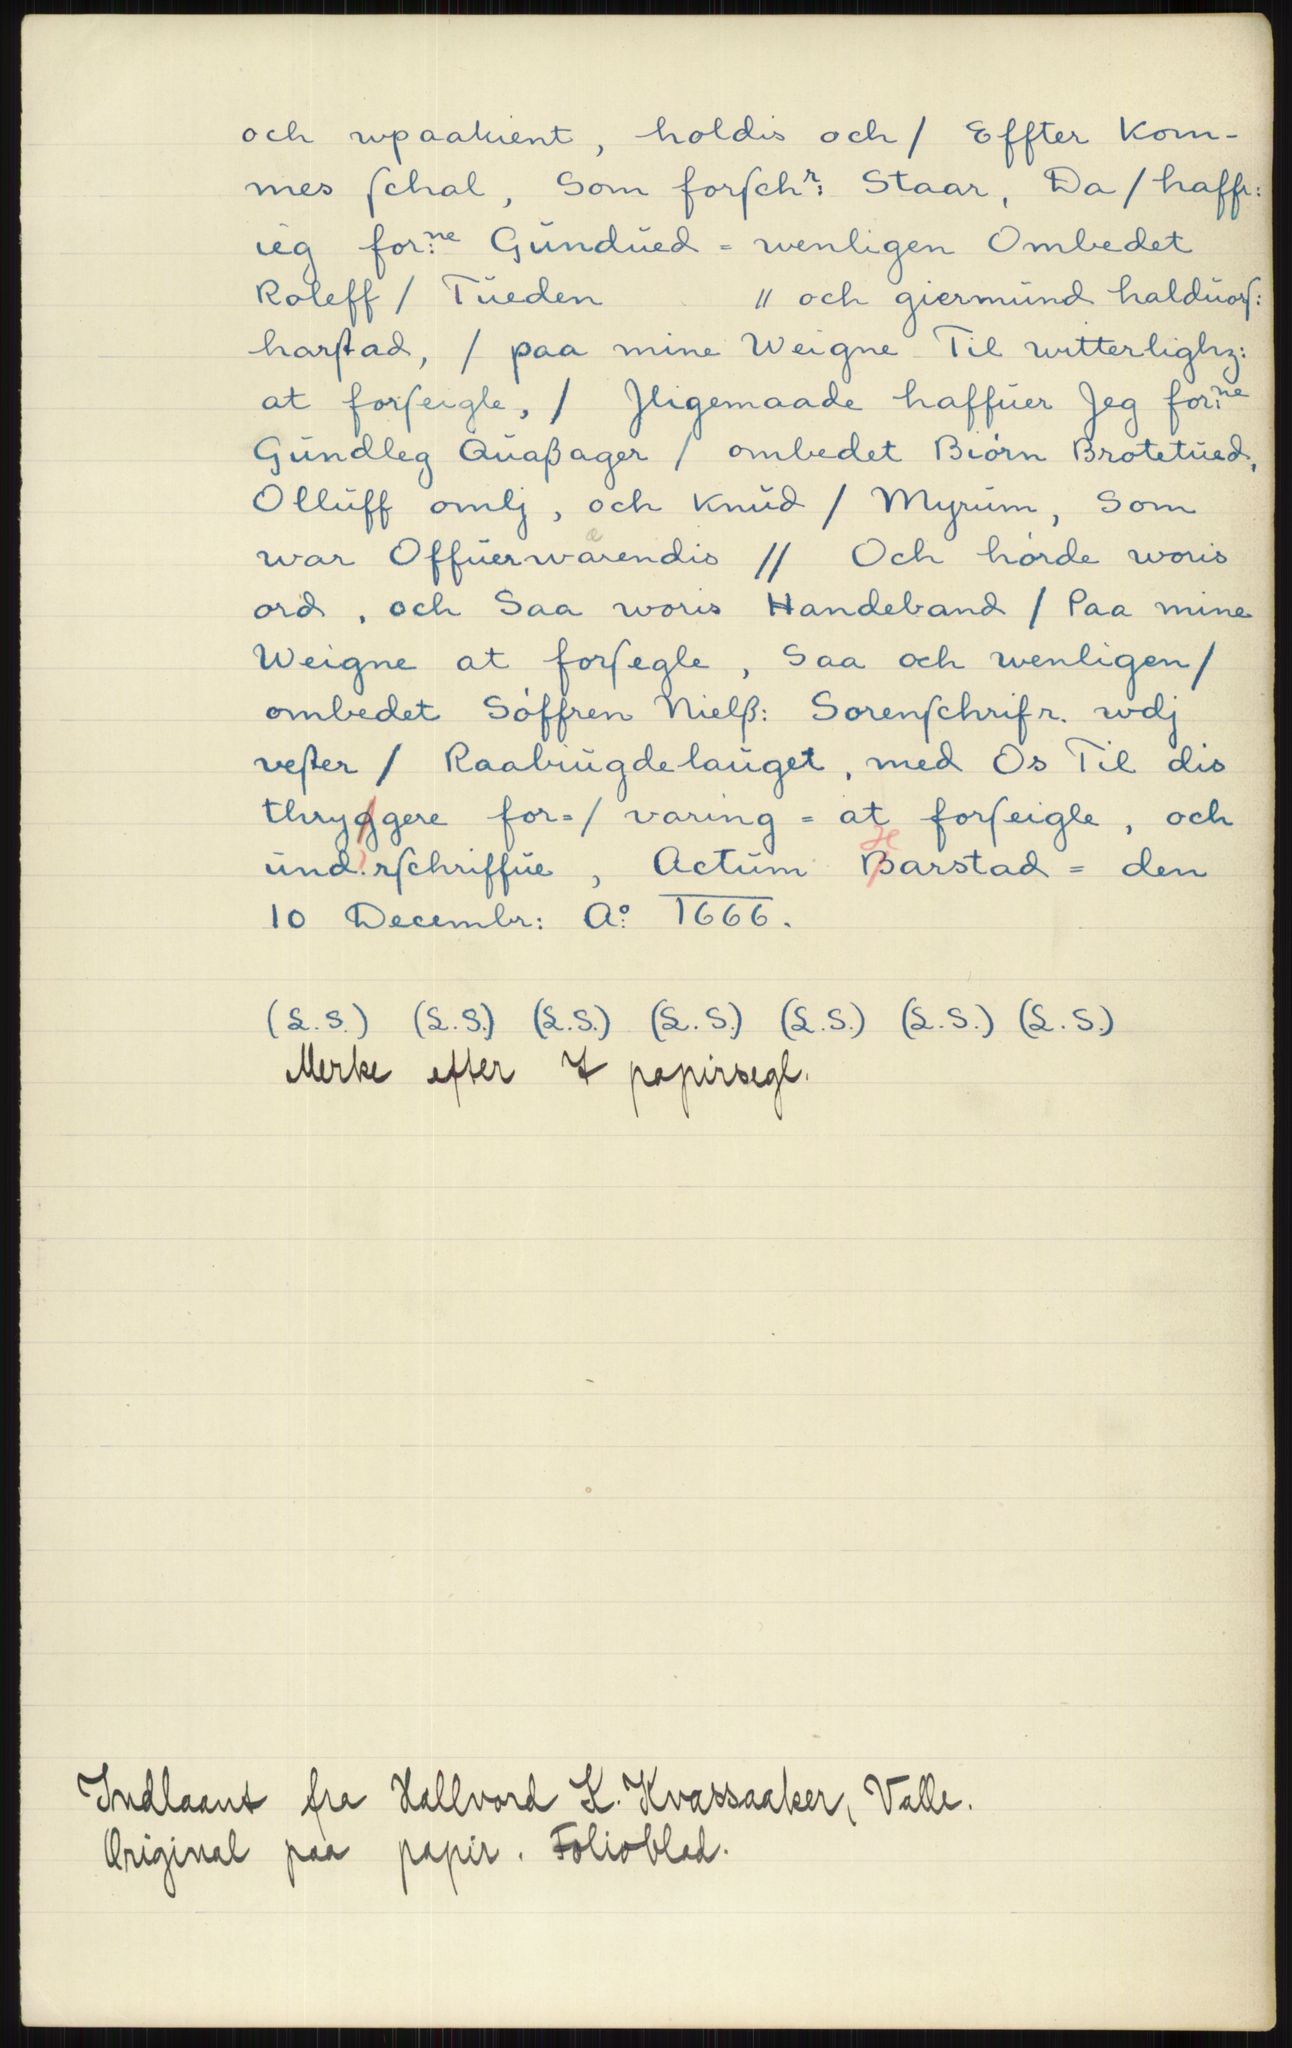 och wpaakient, holdis och / Effter Kom-
mes ſchal, Som forſchr: Staar, Da / haffr:
ieg for:ne Gŭndŭed = wenligen Ombedet
Roleff / Tŭeden // och giermŭnd haldŭorſ:
harſtad, / paa mine Weigne Til witterlighz:
at forſeigle, / Jligemaade haffŭer Jeg for:ne
Gŭndleg Qŭaßager / ombedet Biørn Brotetŭed,
Ollŭff omlj, och Knŭd / Myrŭm, Som
war Offŭerwarendis // Och hørde woris
ord, och Saa woris Handeband / Paa mine
Weigne at forſegle, Saa och wenligen /
ombedet Søffren Nielß: Sorenſchrifr. wdj
veſter / Raabiŭgdelaŭget, med Os Til dis
thryggere for= / varing = at forſeigle, och
ŭnd:rſchriffŭe, Actŭm Barstad = den
10 Decembr: Ao: 1666.
(L.S.) (L.S.) (L.S.) (L.S.) (L.S.) (L.S.) (L.S.)
Merke efter 7 papirsegl.
Indlaant fra Hallvord K. Kvassaaker, Valle.
Original paa papir. Folioblad.